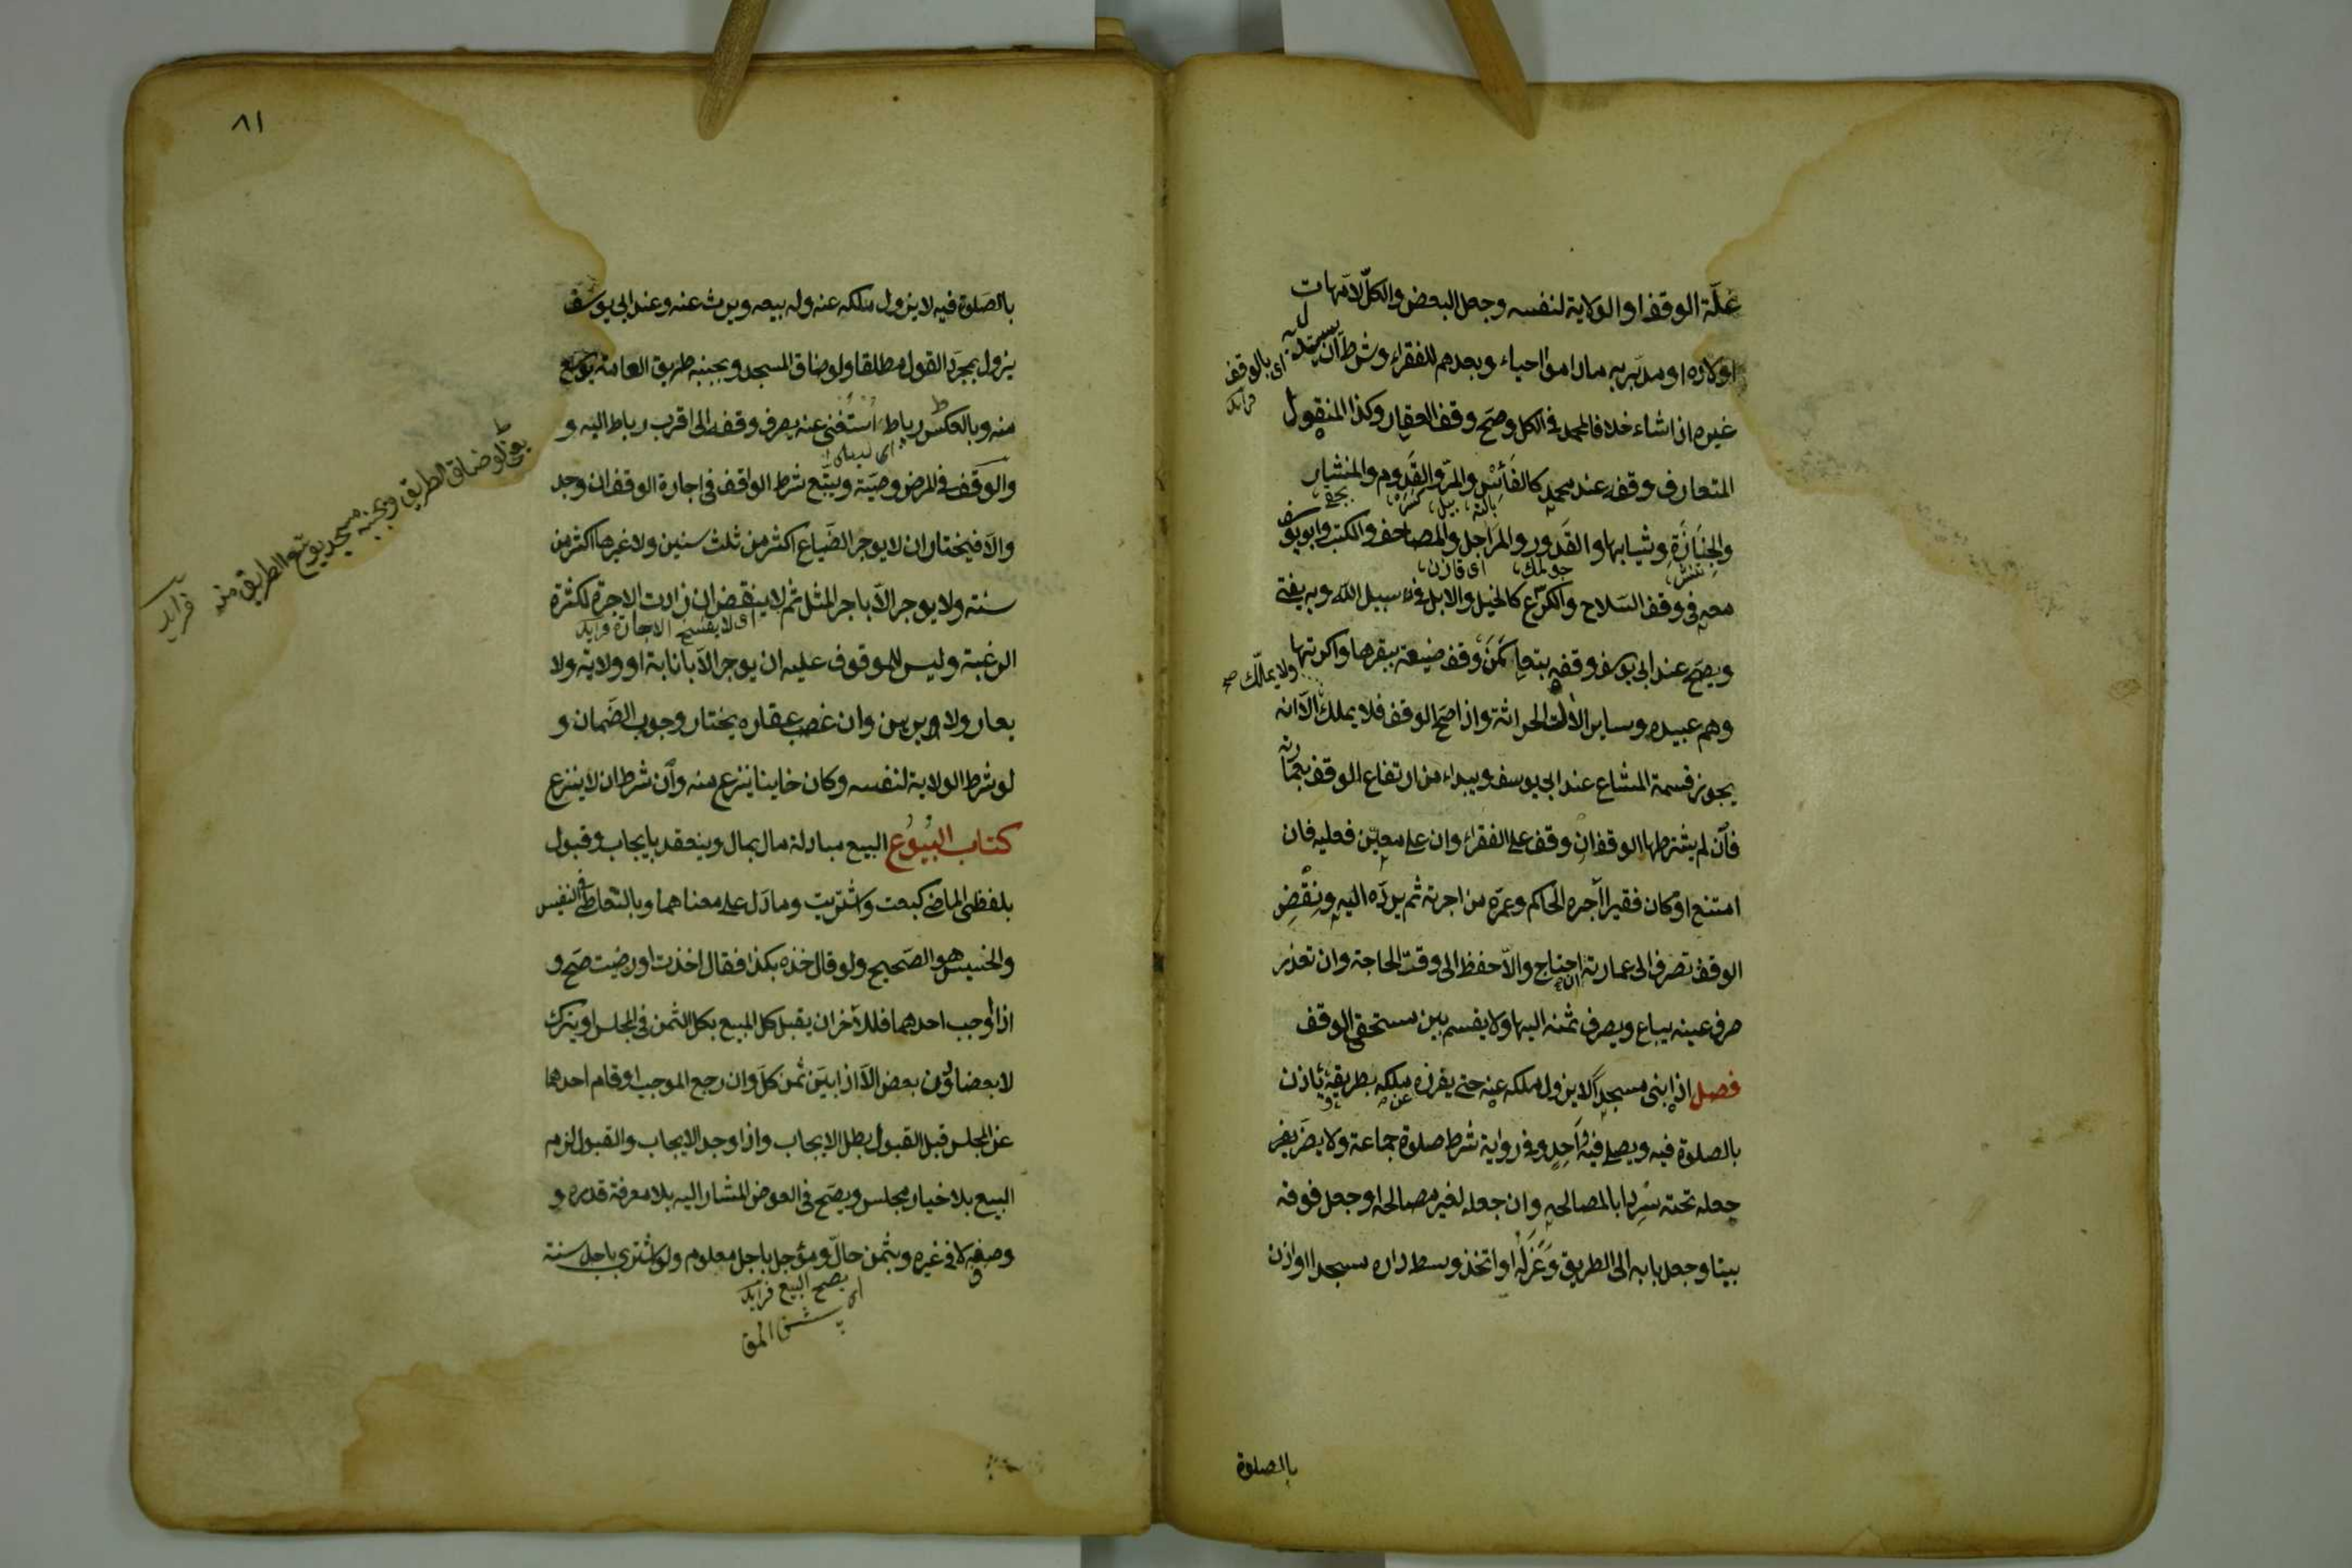 غلّة الوقف او الولاية لنفسه وجعل البعض والكلّ لامّهات
اولاده او مدبّريه ماداموا احياء وبعدهم للفقراء وشرط ان يستبدل به
اى بالوقف
فرايد
غيره اذا شاء خلافا لمحمد فى الكل وصحّ وقف العقار وكذا المنقول
المتعارف وقفه عند محمد كالفَأْس والمرّ والقَدوم والمنشار
والجنازة وثيابها والقدور والمراجل والمصاحف والكتب وابو يوسف
معه فى وقف السّلاح والكرّع كالخيل والابل فى سبيل اللّه وبه يفتى
ويصحّ عند ابى يوسف وقفه بتعا كمن وقف ضيعة ببقرها واكرتها
ولا يملّك صح
وهم عبيده وساير الالت الحراثة واذا صحّ الوقف فلا يملك الّا انه
يجوز قسمة المشاع عند ابى يوسف ويبداء من ارتفاع الوقف بعمارته
فان لم يشترطها الوقف ان وقف على الفقراء وان على معيّن فعليه فان
امتنع او كان فقيرا آجره الحاكم وعمّره من اجرته ثم يردّه اليه ونقض
الوقف تصرف الى عمارته ان احتاج والّا حفظ الى وقت الحاجة وان تعذر
صرف عينه يباع ويصرف ثمنه اليها ولا يقسم بين مستحقى الوقف
فصل اذا بنى مسجدا لا يزول ملكه عنه حتى يفرزه عن ملكه بطريقه ويأذن
بالصلوة فيه ويصلى فيه واحد وفى رواية شرط صلوة جماعة ولا يضرّ
جعله تحته سردابا لمصالحه وان جعله لغير مصالحه او جعل فوقه
بيتا وجعل بابه الى الطريق وعَزَلَهُ او اتخذ وسط داره مسجدا واذن
بالصلوة
٨١
بالصّلوة فيه لا يزول ملكه عنه وله بيعه ويرث عنه وعند ابى يوسف
يزول بمجرّد القول مطلقا ولو ضاق المسجد وبجنبه طريق العامة يوسّع
منه وبالعكس رباط استغنى عنه يصرف وقفه الى اقرب رباط اليه و
والوقف فى المرض وصيّة ويتّبع شرط الواقف فى اجارة الوقف ان وجد
والّا فيختار ان لا يوجر الضّياع اكثر من ثلث سنين ولا غيرها اكثر من
سنة ولا يوجر الّا باجر المثل ثم لا ينقض ان زادت الاجرة لكثرة
اى لا يفسخ الاجارة فرايد
الرغبة وليس للموقوف عليه ان يوجر الّا بانابة او ولاية ولا
يعار ولا يرهن وان غصب عقاره يختار وجوب الضّمان و
لو شرط الولاية لنفسه وكان خاينا ينزع منه وان شرط ان لا ينزع
كتاب البُيُوع البيع مبادلة مال بمال وينعقد بايجاب وقبول
بلفظى الماضى كبعت واشتريت وما دلّ على معناهما وبالتعاطى فى النفيس
والخسيس هو الصّحيح ولو قال خذه بكذا فقال اخذت او رضيت صحّ و
اذا اوجب احدهما فللآخر ان يقبل كل المبيع بكل الثمن فى المجلس او يترك
لا بعضا دون بعض الّا اذا بيّن ثمن كلّ وان رجع الموجب او قام احدهما
عن المجلس قبل القبول بطل الايجاب واذا وجد الايجاب والقبول لزم
البيع بلا خيار مجلس ويصحّ فى العوض المشار اليه بلا معرفة قدره و
وصفه لا فى غيره وبثمن حالّ ومؤجل باجل معلوم ولو اشترى باجل سنة
اى يصح البيع فرايد
لو ضاق الطريق وبجنبه مسجد يوسّع الطريق منه
فرايد